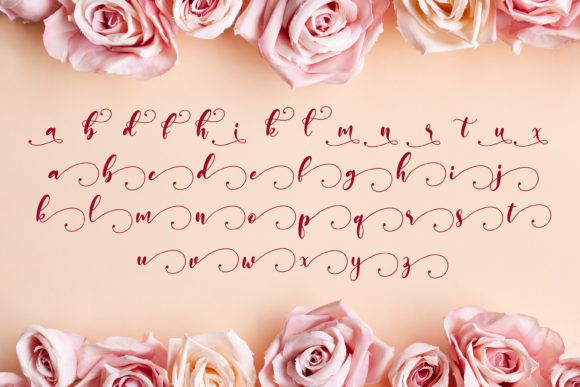 a b d f h i k l m n r t u x
a b c d e f g h i j
k l m n o p q r s t
u v w x y z